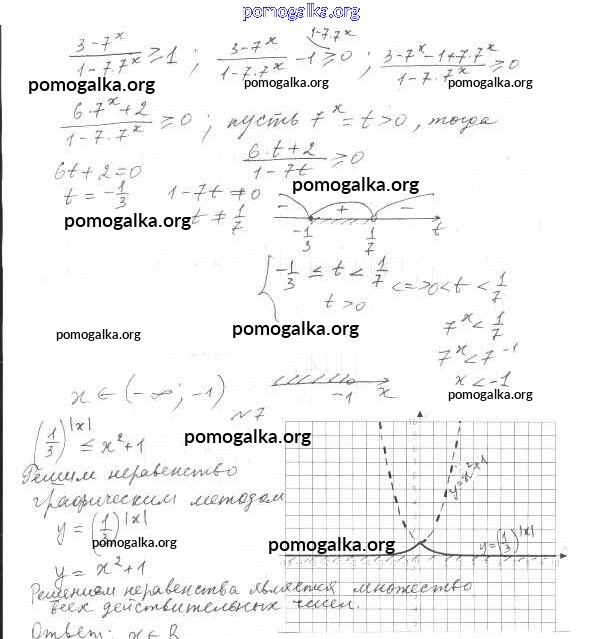 pomogalka.org
(3-7^x)/(1-7·7^x) ≥ 1 ; (3-7^x)/(1-7·7^x) - 1 (1-7·7^x) ≥ 0 ; (3-7^x-1+7·7^x)/(1-7·7^x) ≥ 0
pomogalka.org pomogalka.org pomogalka.org
(6·7^x+2)/(1-7·7^x) ≥ 0 ; пусть 7^x = t > 0, тогда
6t+2=0 (6·t+2)/(1-7t) ≥ 0
t = -1/3 1-7t ≠ 0 pomogalka.org
pomogalka.org t ≠ 1/7 - + -
-1/3 1/7 t
{ -1/3 ≤ t < 1/7 <=> 0<t<1/7
t>0
pomogalka.org pomogalka.org 7^x < 1/7
7^x < 7^-1
x < -1
x ∈ (-∞; -1) -1 x
pomogalka.org
№7
(1/3)^|x| ≤ x²+1 pomogalka.org
Решим неравенство
графическим методом
y = (1/3)^|x|
pomogalka.org pomogalka.org
y = x²+1
y=x²+1
y=(1/3)^|x|
Решением неравенства является множество
всех действительных чисел.
Ответ: x ∈ R